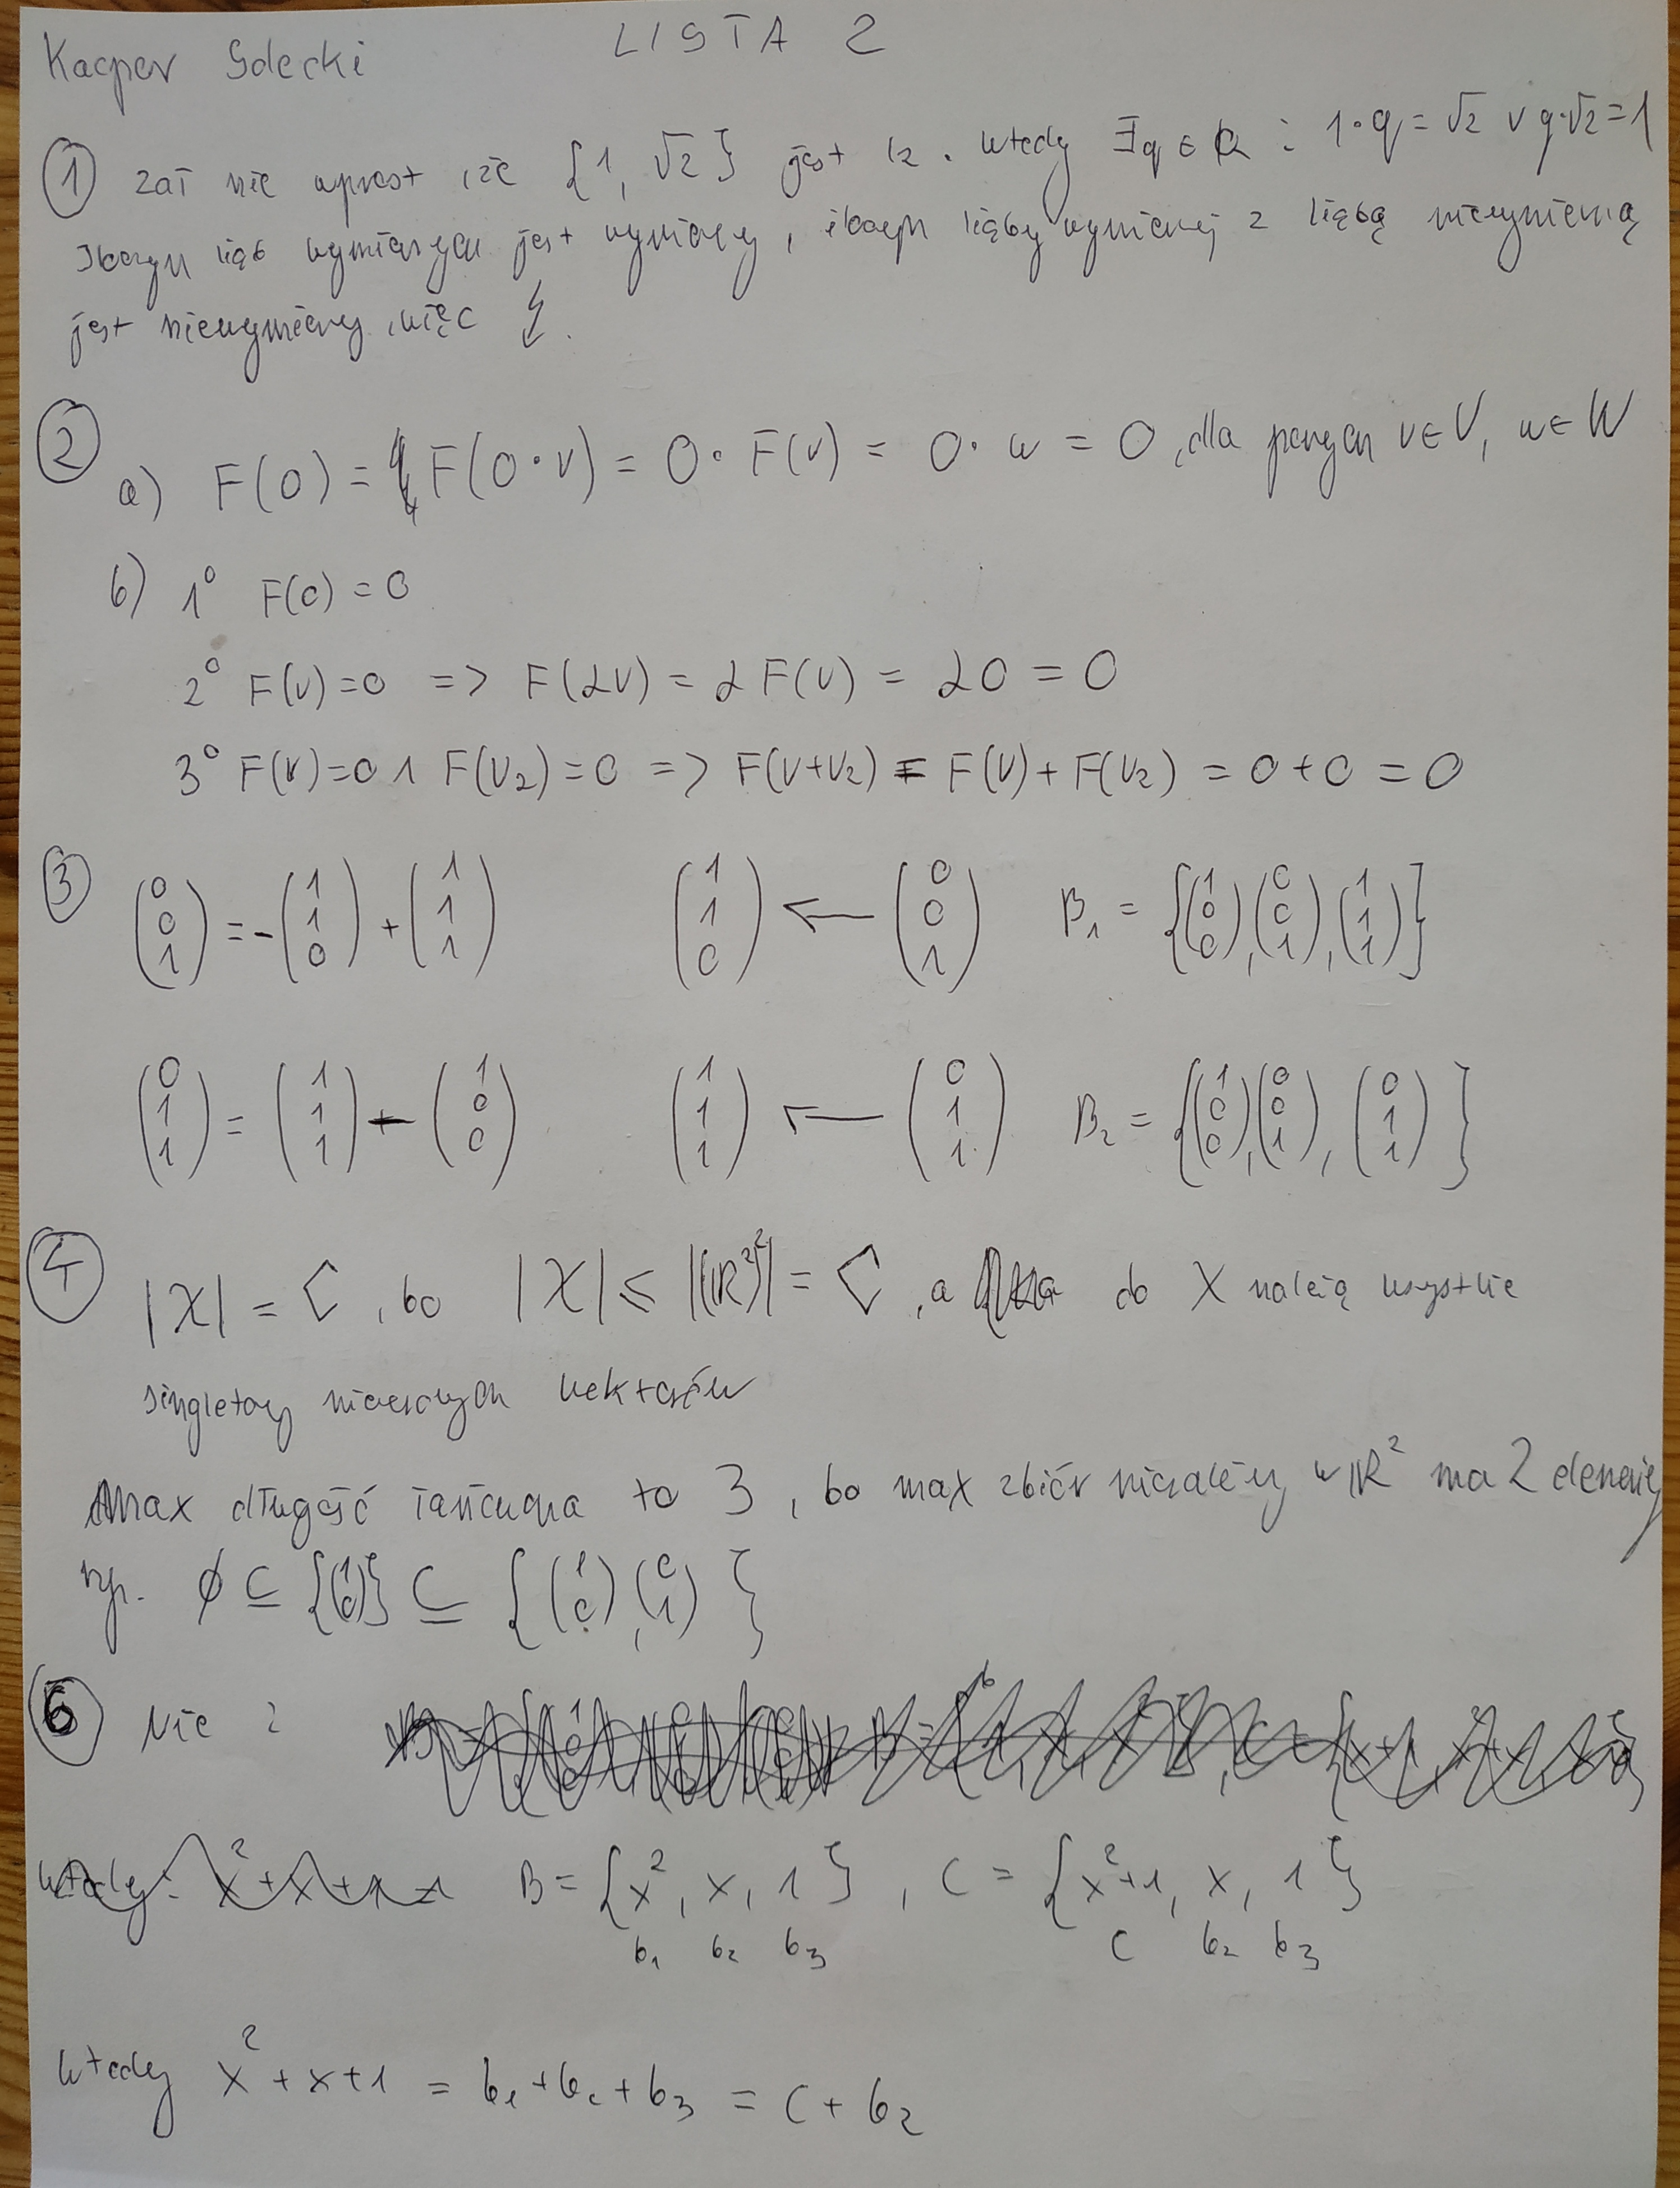 LISTA 2
Kacper Solecki
① zał nie wprost, że {1, √2} jest lz. wtedy ∃q ∈ ℚ : 1·q = √2 ∨ q·√2 = 1
Iloczyn liczb wymiernych jest wymierny, iloczyn liczby wymiernej z liczbą niewymierną
jest niewymierny, więc ↯.
②
a) F(0) = F(0·v) = 0·F(v) = 0·w = 0, dla pewnych v∈V, w∈W
b) 1° F(0) = 0
2° F(v)=0 => F(αv) = αF(v) = α0 = 0
3° F(v)=0 ∧ F(v₂)=0 => F(v+v₂) = F(v)+F(v₂) = 0+0 = 0
③ (0 0 1) = -(1 1 0) + (1 1 1) (1 1 0) ← (0 0 1) B₁ = {(1 0 0), (0 0 1), (1 1 1)}
(0 1 1) = (1 1 1) - (1 0 0) (1 1 1) ← (0 1 1) B₂ = {(1 0 0), (0 0 1), (0 1 1)}
④ |X| = C, bo |X| ≤ |(ℝ²)²| = C, a do X należą wszystkie
singletony niezerowych wektorów
Max długość łańcucha to 3, bo max zbiór niezależny w ℝ² ma 2 elementy
np. ∅ ⊆ {(1 0)} ⊆ {(1 0), (0 1)}
⑥ Nie :
B = {x², x, 1}, C = {x²+1, x, 1}
b₁ b₂ b₃ c b₂ b₃
Wtedy x²+x+1 = b₁+b₂+b₃ = c+b₂